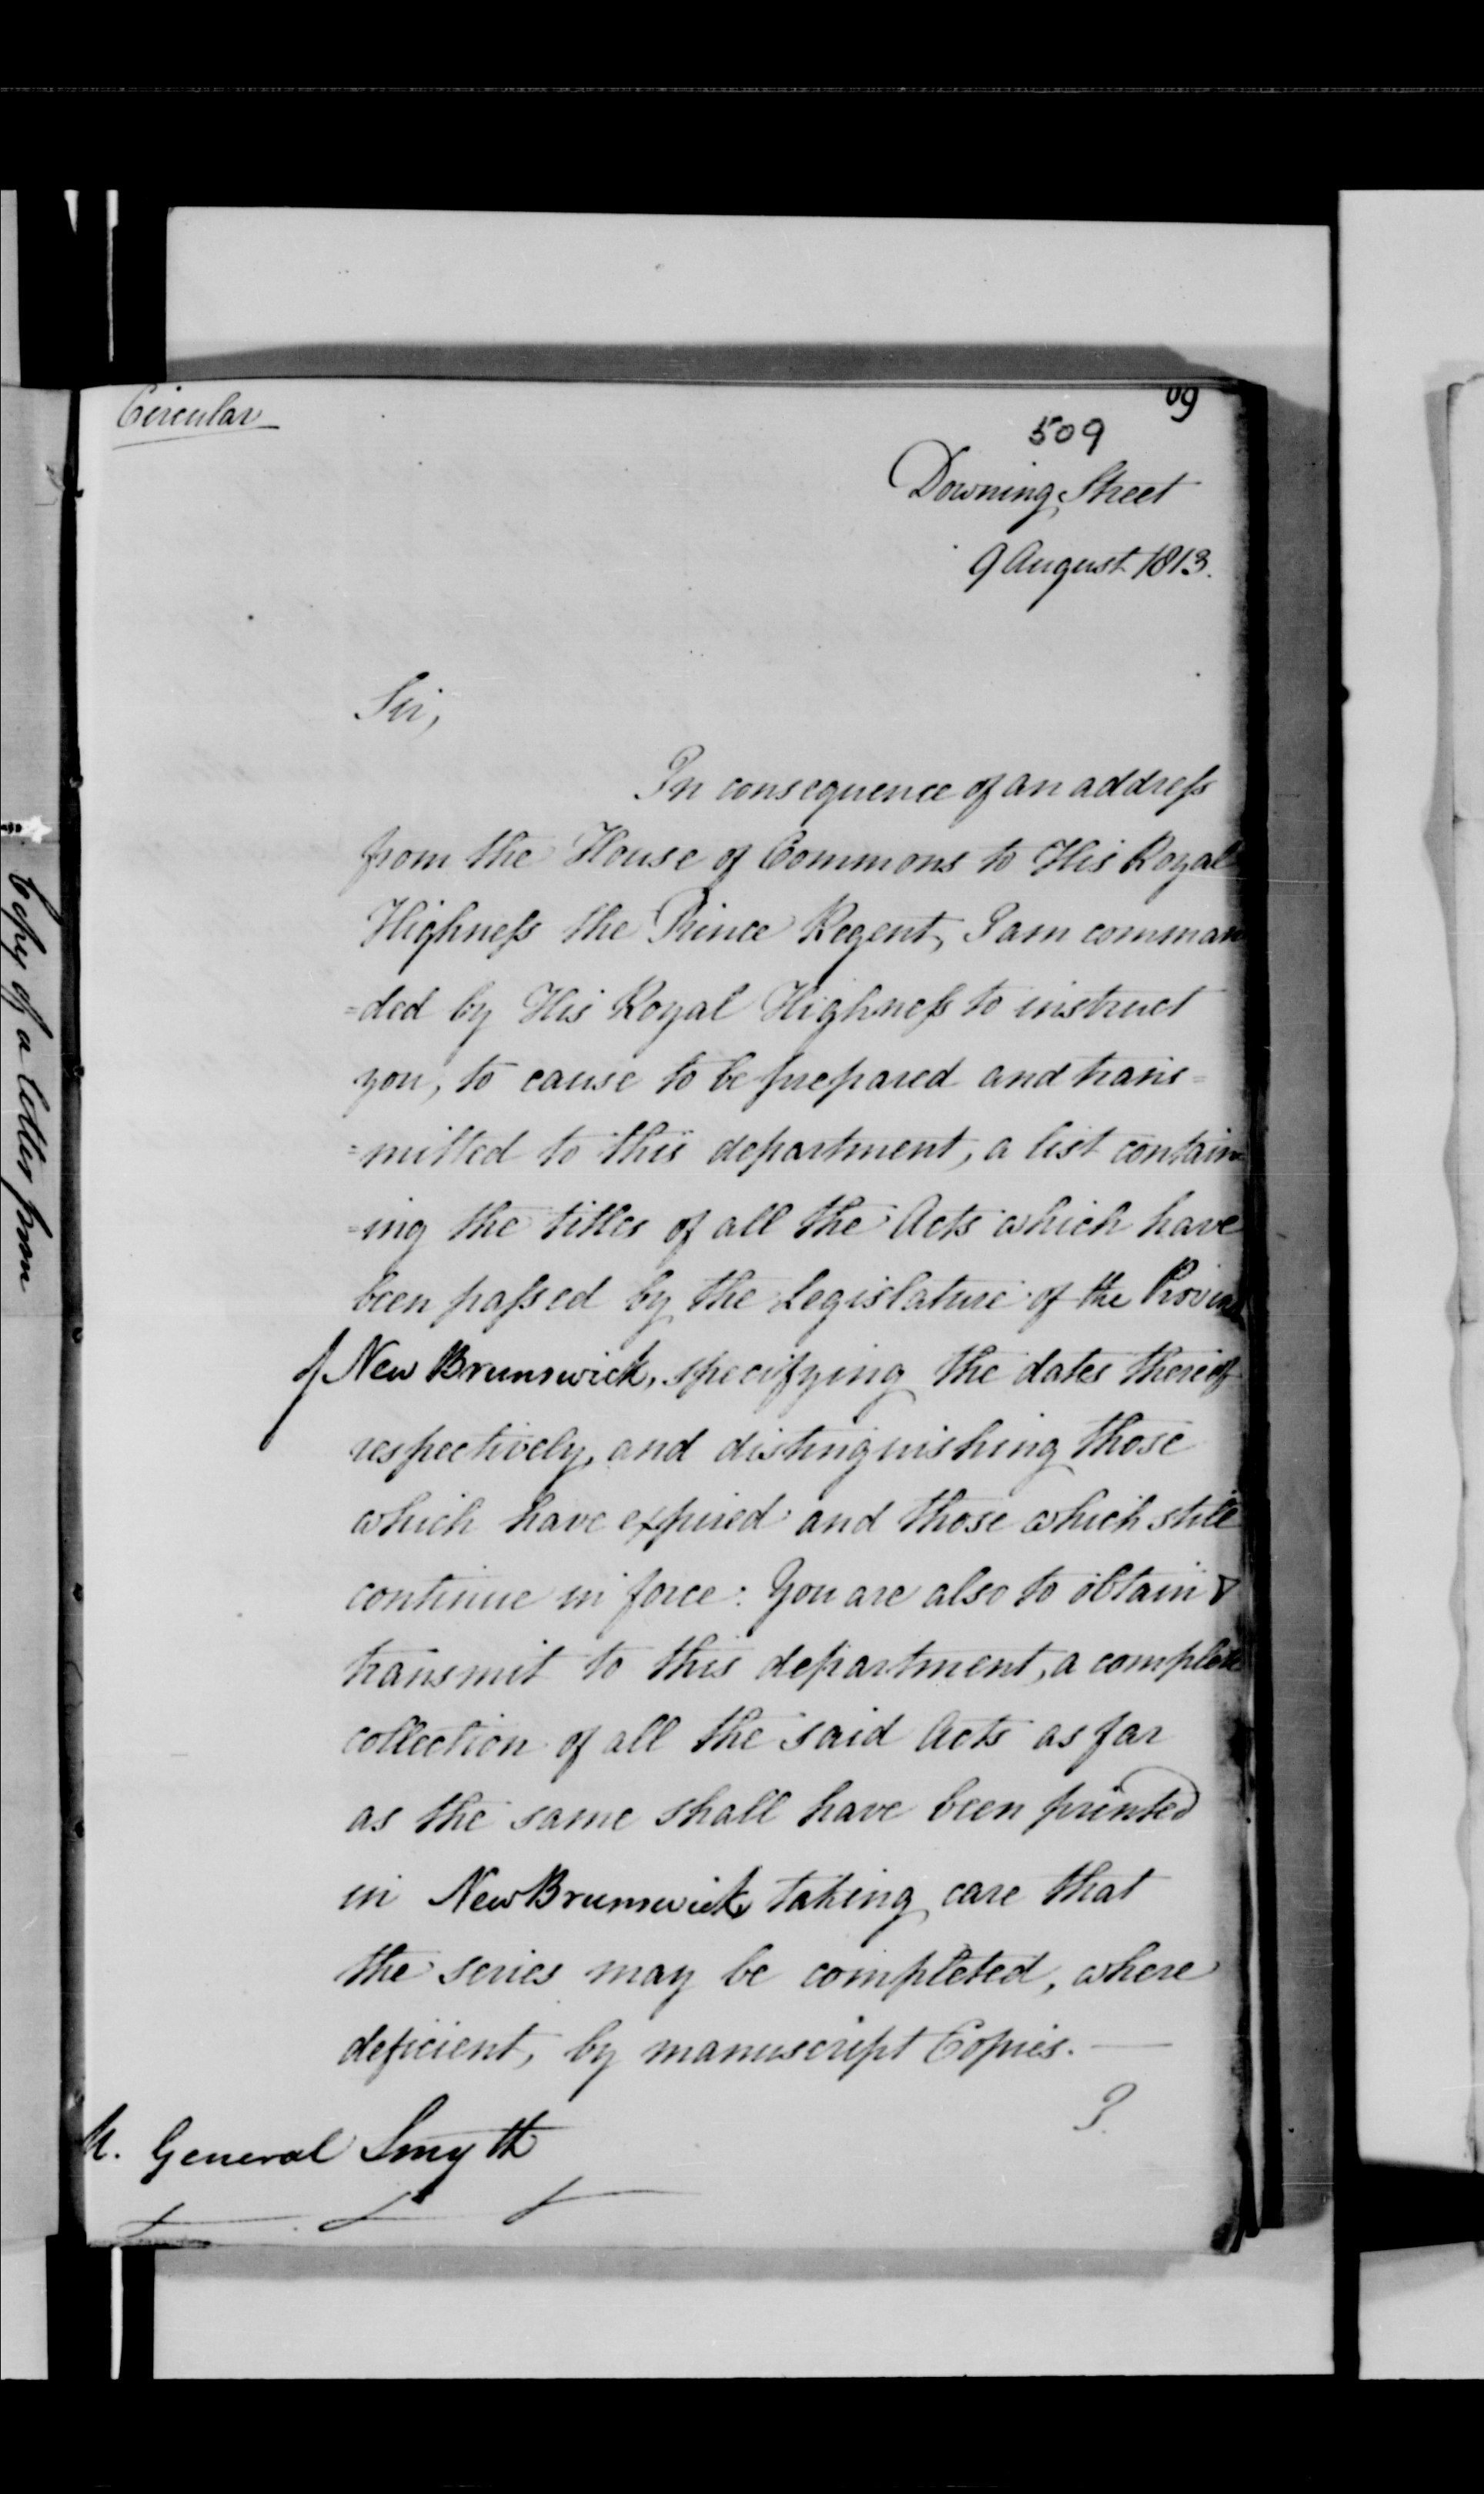 Circular
09
509
Downing Street
9 August 1813.
Sir,
In consequence of an addreſs
from the House of Commons to His Royal
Highneſs the Prince Regent, I am comman
=ded by His Royal Highneſs to instruct
you, to cause to be prepared and trans=
=mitted to this department, a list contain=
=ing the titles of all the Acts which have
been paſsed by the Legislature of the
of New Brunswick, specifying the dates thereof
respectively, and distinguishing those
which have expired and those which still
continue in force: You are also to obtain &
transmit to this department, a complete
collection of all the said Acts as far
as the same shall have been printed
in New Brunswick taking care that
the series may be completed, where
deficient, by manuscript Copies. —
I
General Smyth
Copy of a letter from